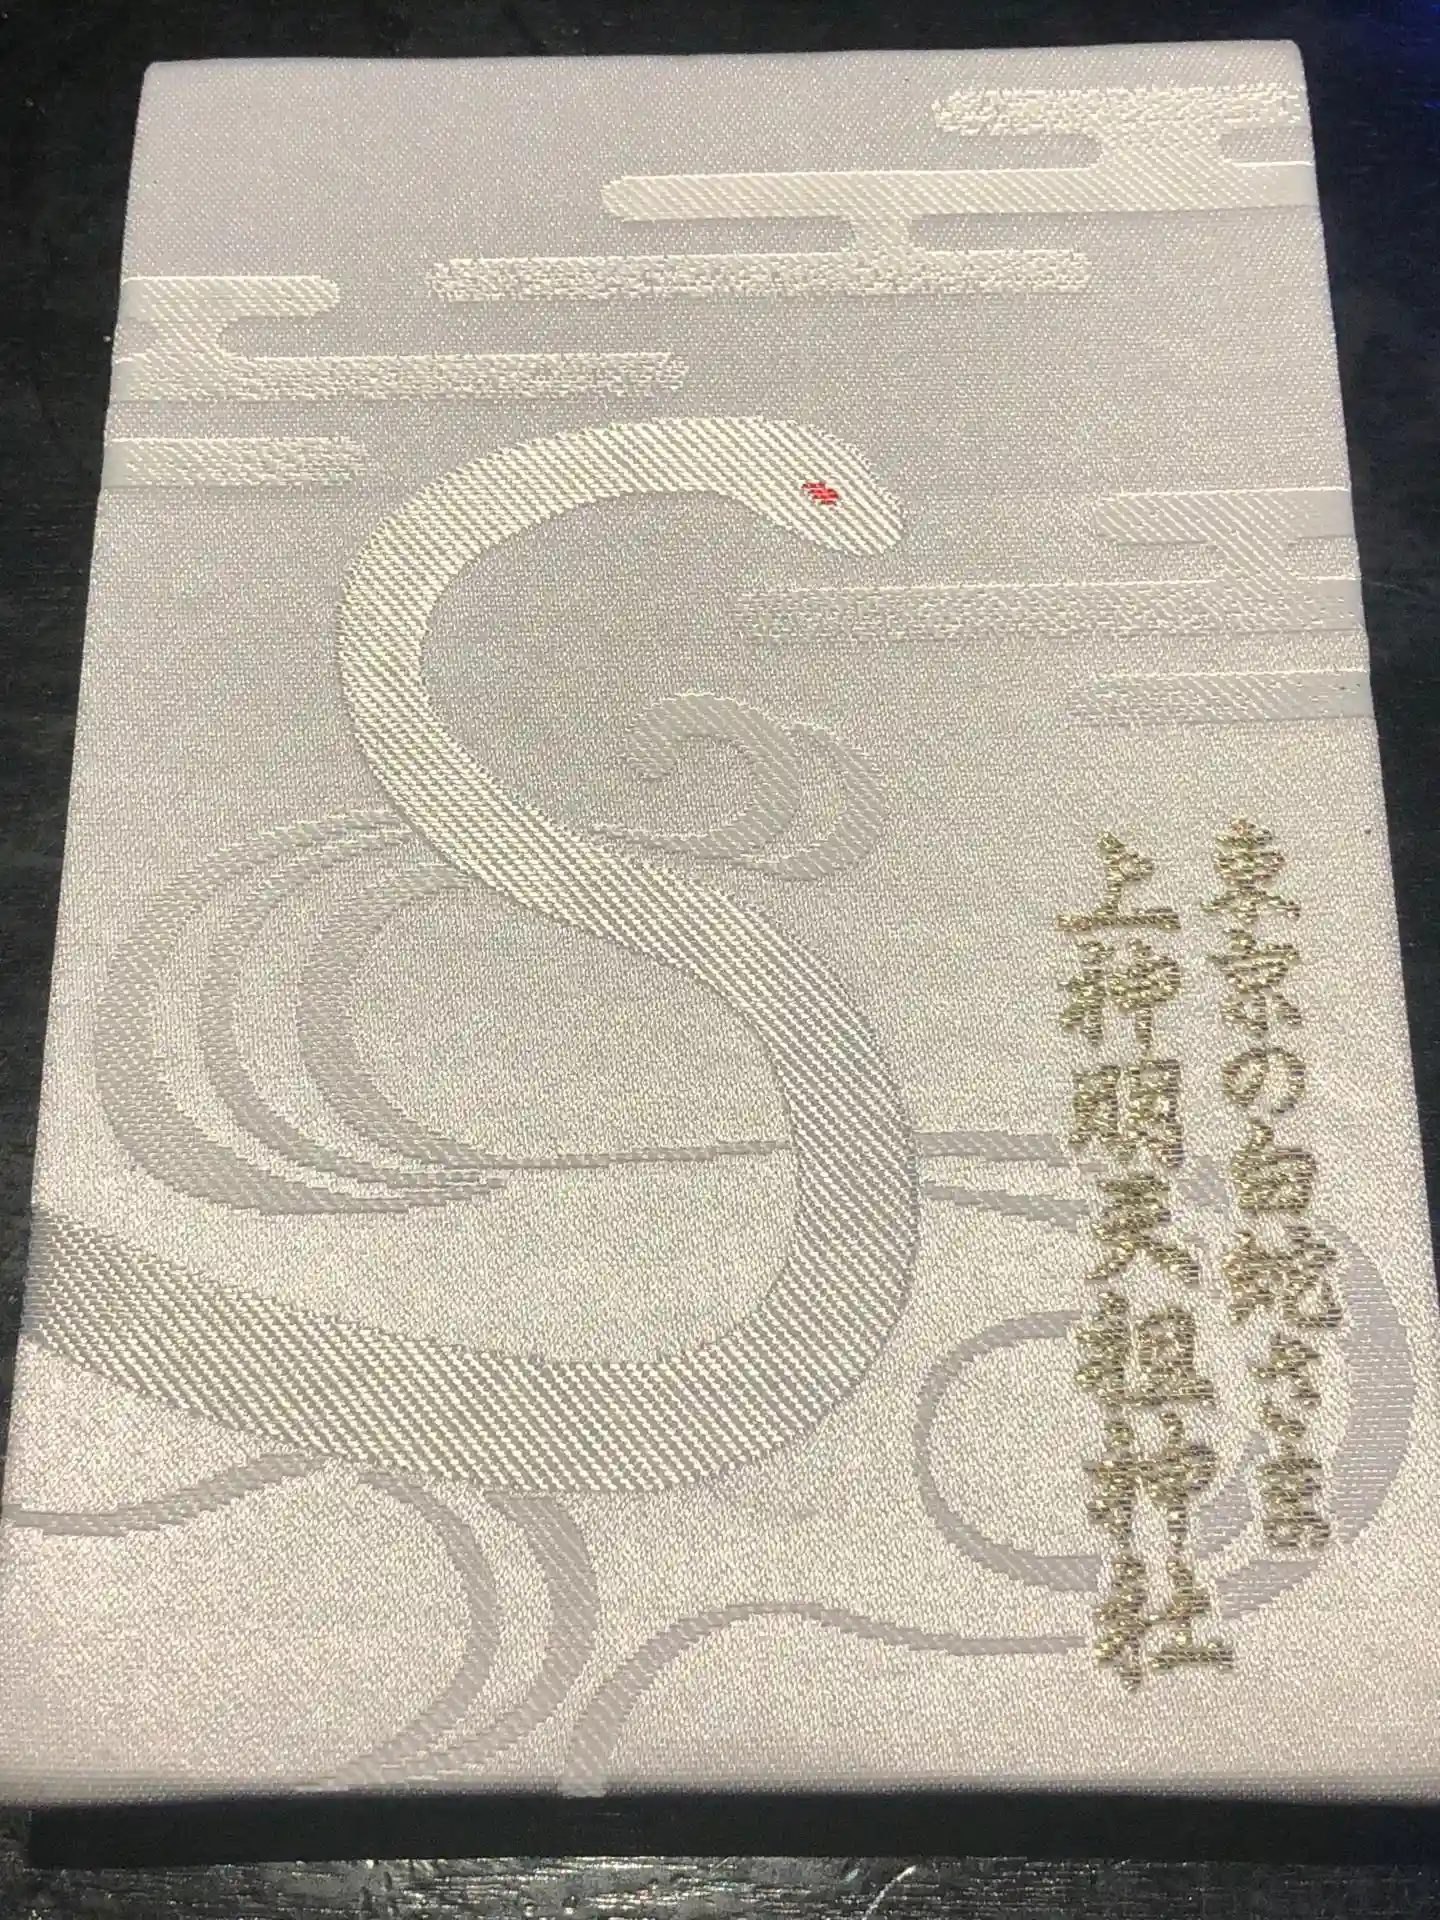 東京の白蛇
上神明天祖神社